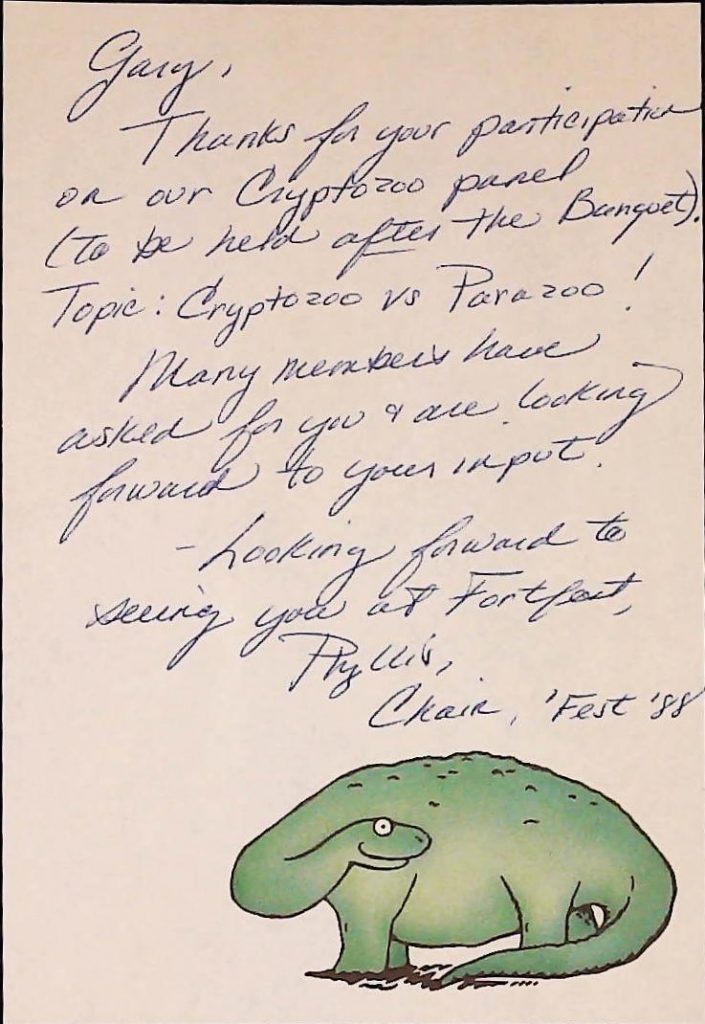 Gary,
Thanks for your participation
on our Cryptozoo panel
(to be held after the Banquet).
Topic: Cryptozoo vs Parazoo!
Many members have
asked for you & are looking
forward to your input.
- Looking forward to
seeing you at Fortfest,
Phyllis,
Chair, 'Fest '88